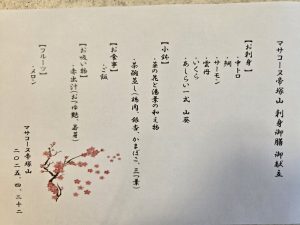 マサコーヌ帝塚山 刺身御膳 御献立
【お刺身】
・中トロ
・鯛
・サーモン
・雲丹
・いくら
・あしらい一式 山葵
【小鉢】
・菜の花と湯葉の和え物
・茶碗蒸し(鶏肉、銀杏、かまぼこ、三つ葉)
【お食事】
・ご飯
【お吸い物】
・赤出汁(おつゆ麩、若芽)
【フルーツ】
・メロン
マサコーヌ帝塚山
二〇二五、四、